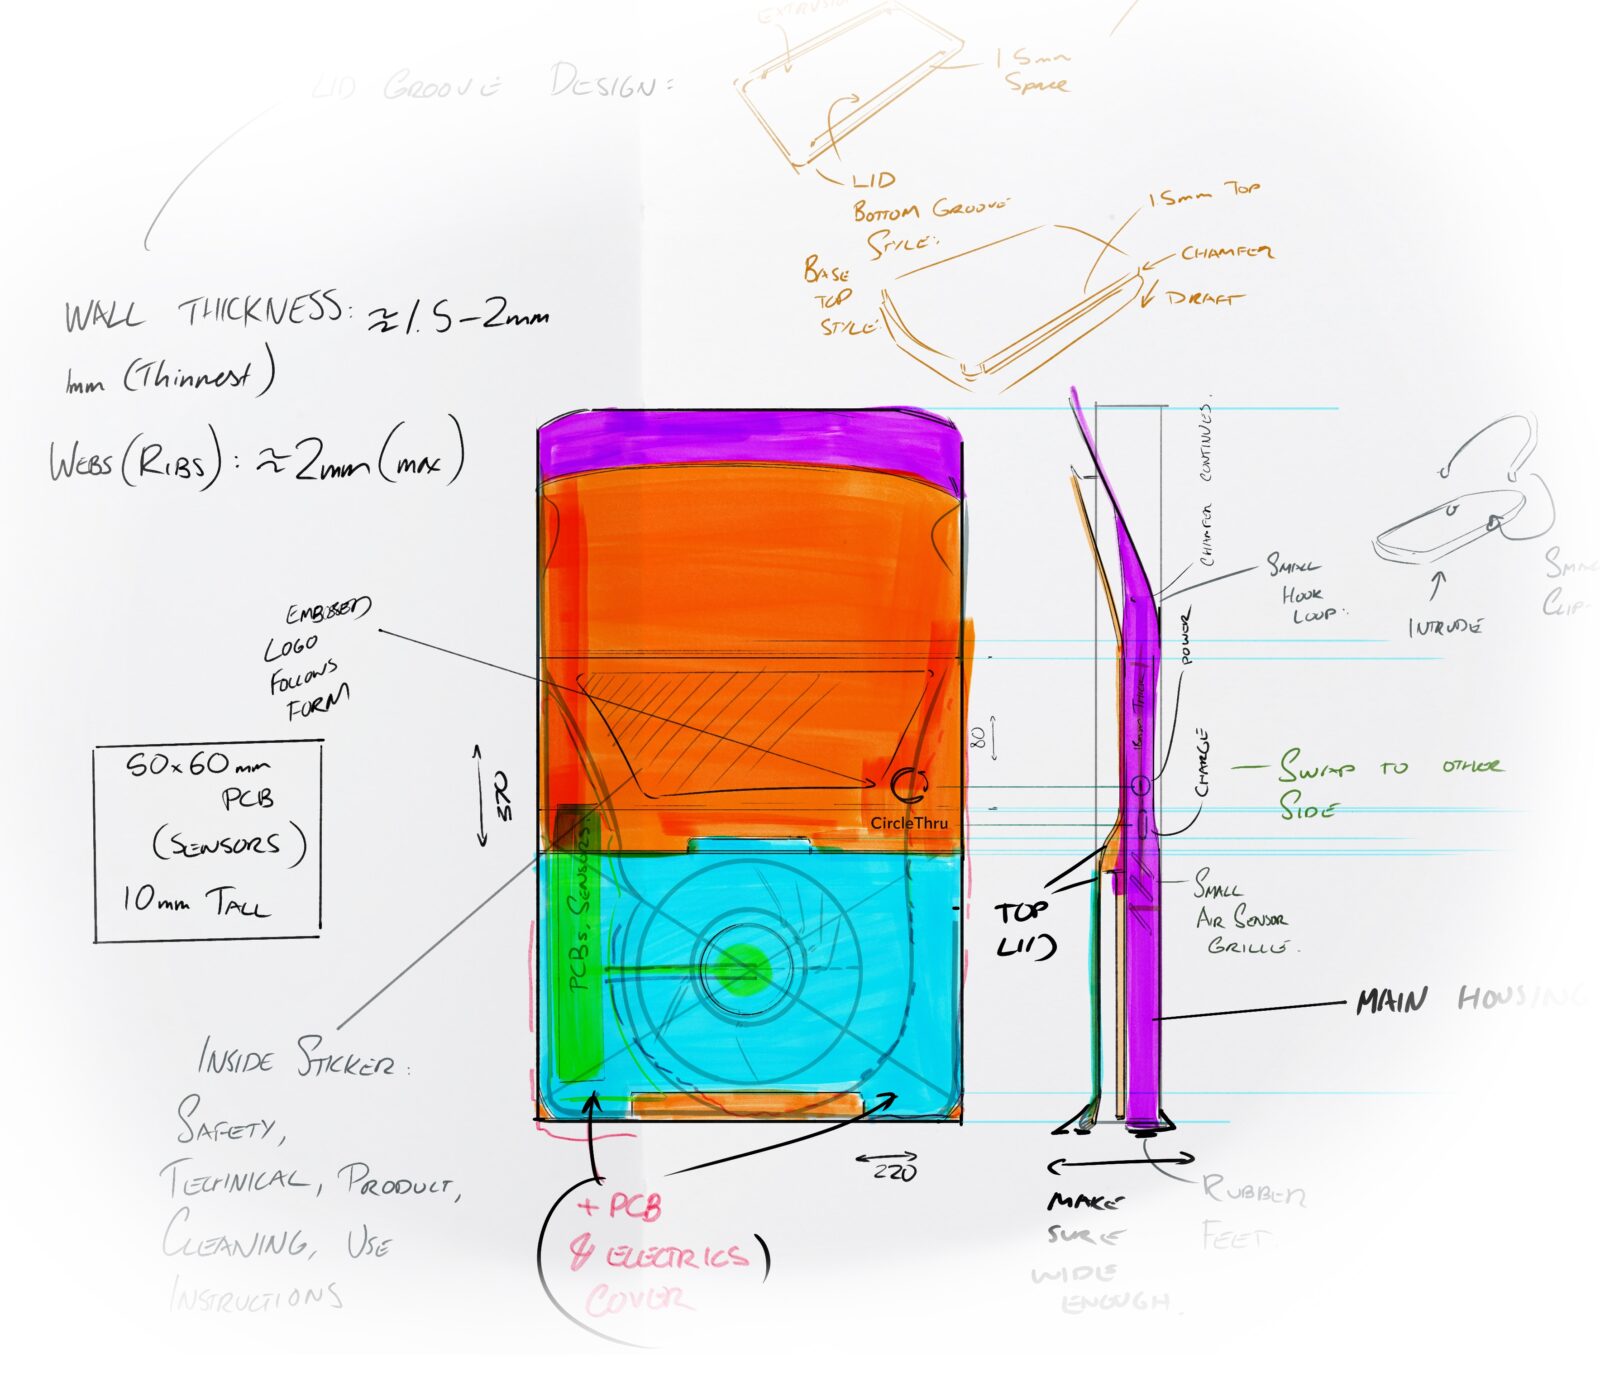 EXTRUSION
LID GROOVE DESIGN:
1.5mm
SPACE
LID
BOTTOM GROOVE
STYLE:
1.5mm TOP
BASE
TOP
STYLE:
CHAMFER
DRAFT
WALL THICKNESS: ≈1.5-2mm
1mm (Thinnest)
WEBS (RIBS): ≈2mm (max)
CHAMFER CONTINUES.
SMALL
HOOK
LOOP:
INTRUDE
SMALL
CLIP
EMBOSSED
LOGO
FOLLOWS
FORM
POWER
CHARGE
80
370
CircleThru
SWAP TO OTHER
SIDE
50x60mm
PCB
(SENSORS)
10mm TALL
PCBs, SENSORS.
TOP
LID
SMALL
AIR SENSOR
GRILLE.
MAIN HOUSING
INSIDE STICKER:
SAFETY,
TECHNICAL, PRODUCT,
CLEANING, USE
INSTRUCTIONS
220
+ PCB
& ELECTRICS)
COVER
MAKE
SURE
WIDE
ENOUGH.
RUBBER
FEET.